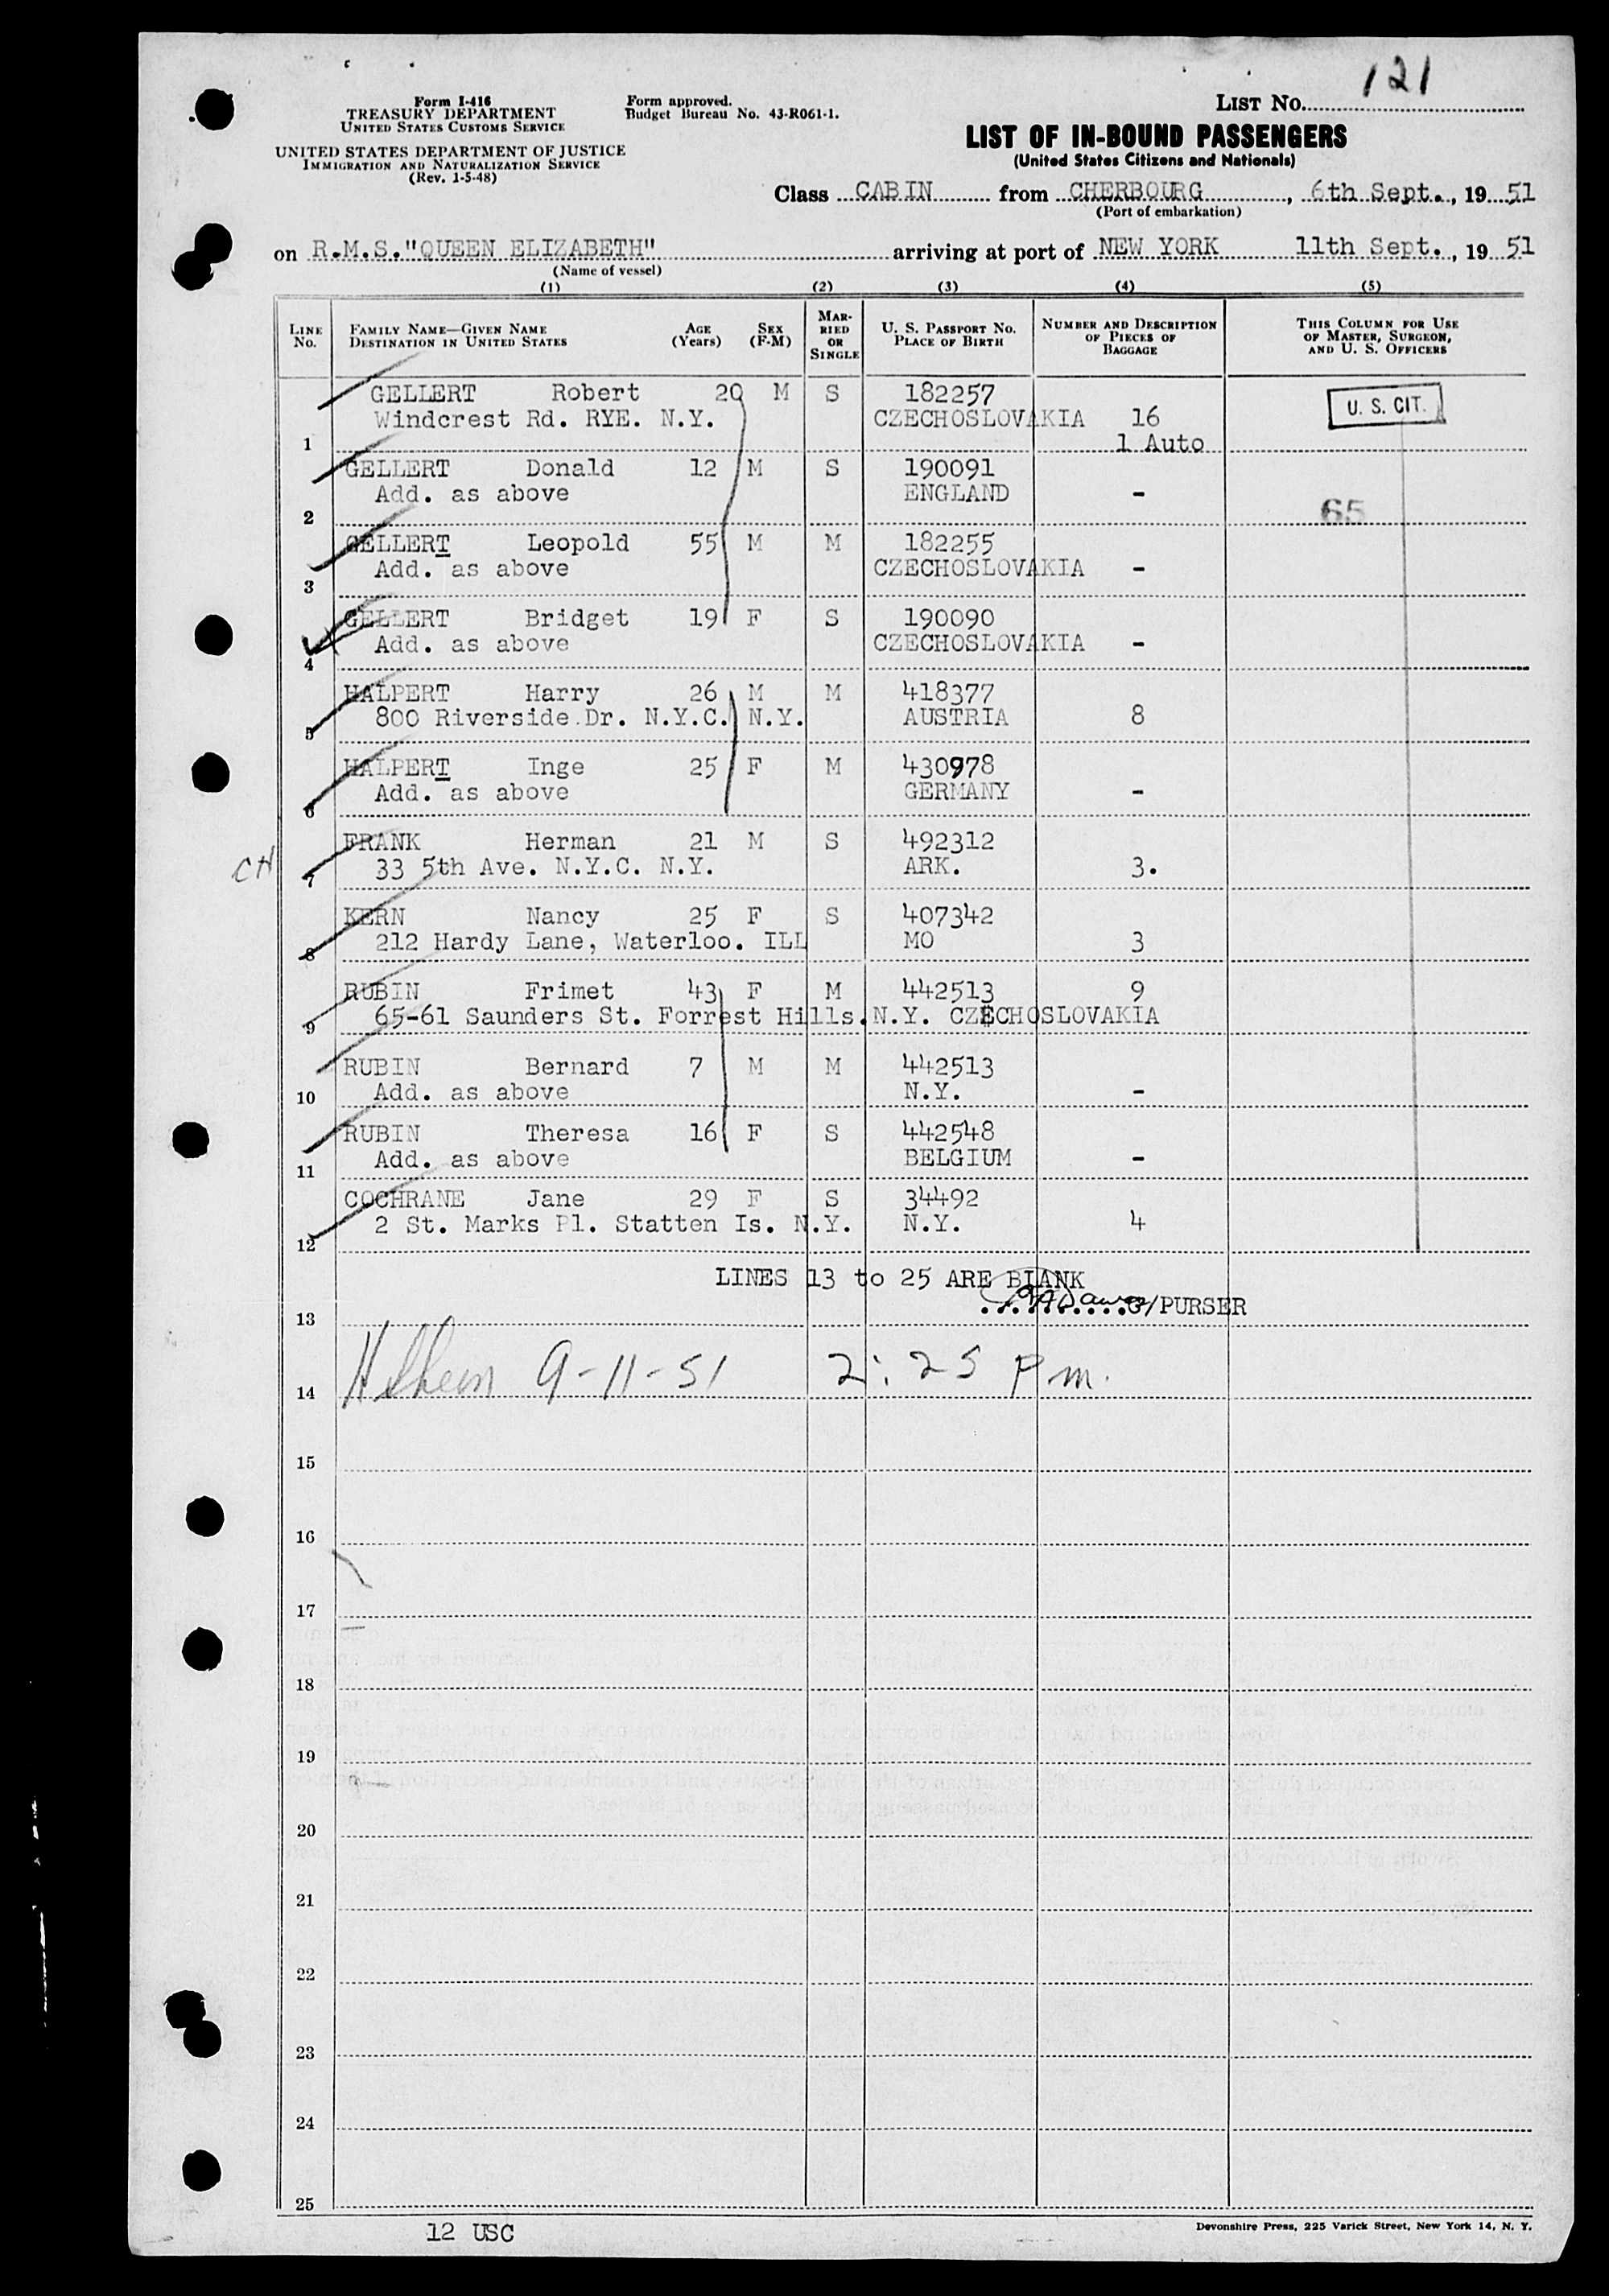 121
Form I-416
TREASURY DEPARTMENT
UNITED STATES CUSTOMS SERVICE
UNITED STATES DEPARTMENT OF JUSTICE
IMMIGRATION AND NATURALIZATION SERVICE
(Rev. 1-5-48)
Form approved.
Budget Bureau No. 43-R061-1.
LIST NO.
LIST OF IN-BOUND PASSENGERS
(United States Citizens and Nationals)
Class CABIN from CHERBOURG, 6th Sept., 19 51
(Port of embarkation)
on R.M.S."QUEEN ELIZABETH" arriving at port of NEW YORK 11th Sept., 19 51
(Name of vessel)
(1) (2) (3) (4) (5)
LINE NO. FAMILY NAME—GIVEN NAME DESTINATION IN UNITED STATES AGE (Years) SEX (F-M) MARRIED OR SINGLE U. S. PASSPORT NO. PLACE OF BIRTH NUMBER AND DESCRIPTION OF PIECES OF BAGGAGE THIS COLUMN FOR USE OF MASTER, SURGEON, AND U. S. OFFICERS
GELLERT Robert 20 M S 182257 U. S. CIT.
Windcrest Rd. RYE. N.Y. CZECHOSLOVAKIA 16
1 1 Auto
GELLERT Donald 12 M S 190091
Add. as above ENGLAND -
2 65
GELLERT Leopold 55 M M 182255
Add. as above CZECHOSLOVAKIA -
3
GELLERT Bridget 19 F S 190090
Add. as above CZECHOSLOVAKIA -
4
HALPERT Harry 26 M M 418377
800 Riverside Dr. N.Y.C. N.Y. AUSTRIA 8
5
HALPERT Inge 25 F M 430978
Add. as above GERMANY -
6
FRANK Herman 21 M S 492312
CH 7 33 5th Ave. N.Y.C. N.Y. ARK. 3.
KERN Nancy 25 F S 407342
8 212 Hardy Lane, Waterloo. ILL MO 3
RUBIN Frimet 43 F M 442513 9
9 65-61 Saunders St. Forrest Hills.N.Y. CZECHOSLOVAKIA
RUBIN Bernard 7 M M 442513
10 Add. as above N.Y. -
RUBIN Theresa 16 F S 442548
11 Add. as above BELGIUM -
COCHRANE Jane 29 F S 34492
12 2 St. Marks Pl. Statten Is. N.Y. N.Y. 4
LINES 13 to 25 ARE BLANK
13 /PURSER
14 9-11-51 2:25 Pm.
15
16
17
18
19
20
21
22
23
24
25
12 USC
Devonshire Press, 225 Varick Street, New York 14, N. Y.